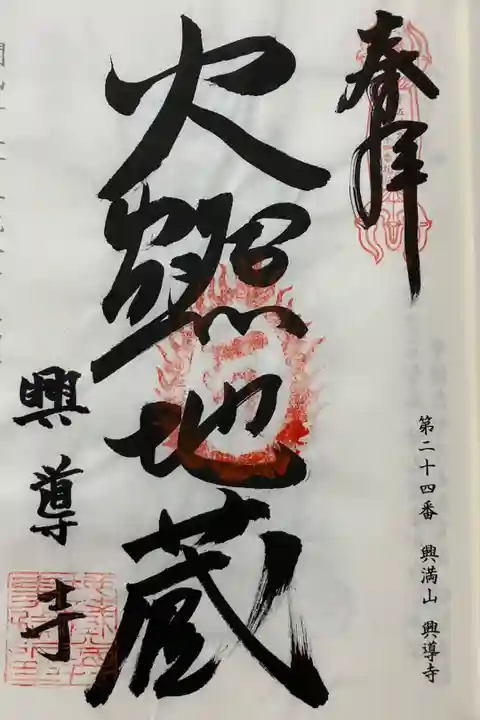 奉拝
第二十四番 興満山 興導寺
火 地蔵
興導寺